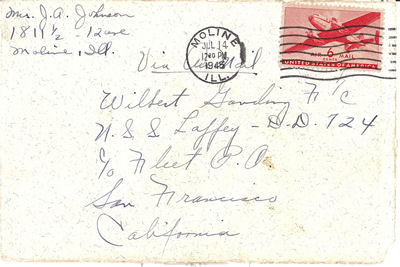 Mrs. J.A. Johnson
1811 1/2 12 ave
Moline, Ill.
MOLINE
JUL 14
1945
ILL.
6
CENTS
MAIL
UNITED STATES OF AMERICA
Via Air Mail
Wilbert Gauding F C
U.S.S Laffey - D.D. 724
C/o Fleet P.O.
San Francisco
California